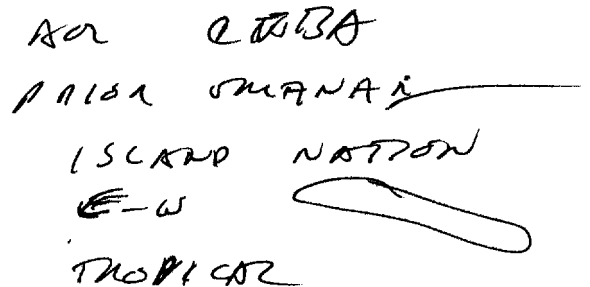 AOL CUBA
PRIOR
ISLAND NATION
E-W
TROPICAL